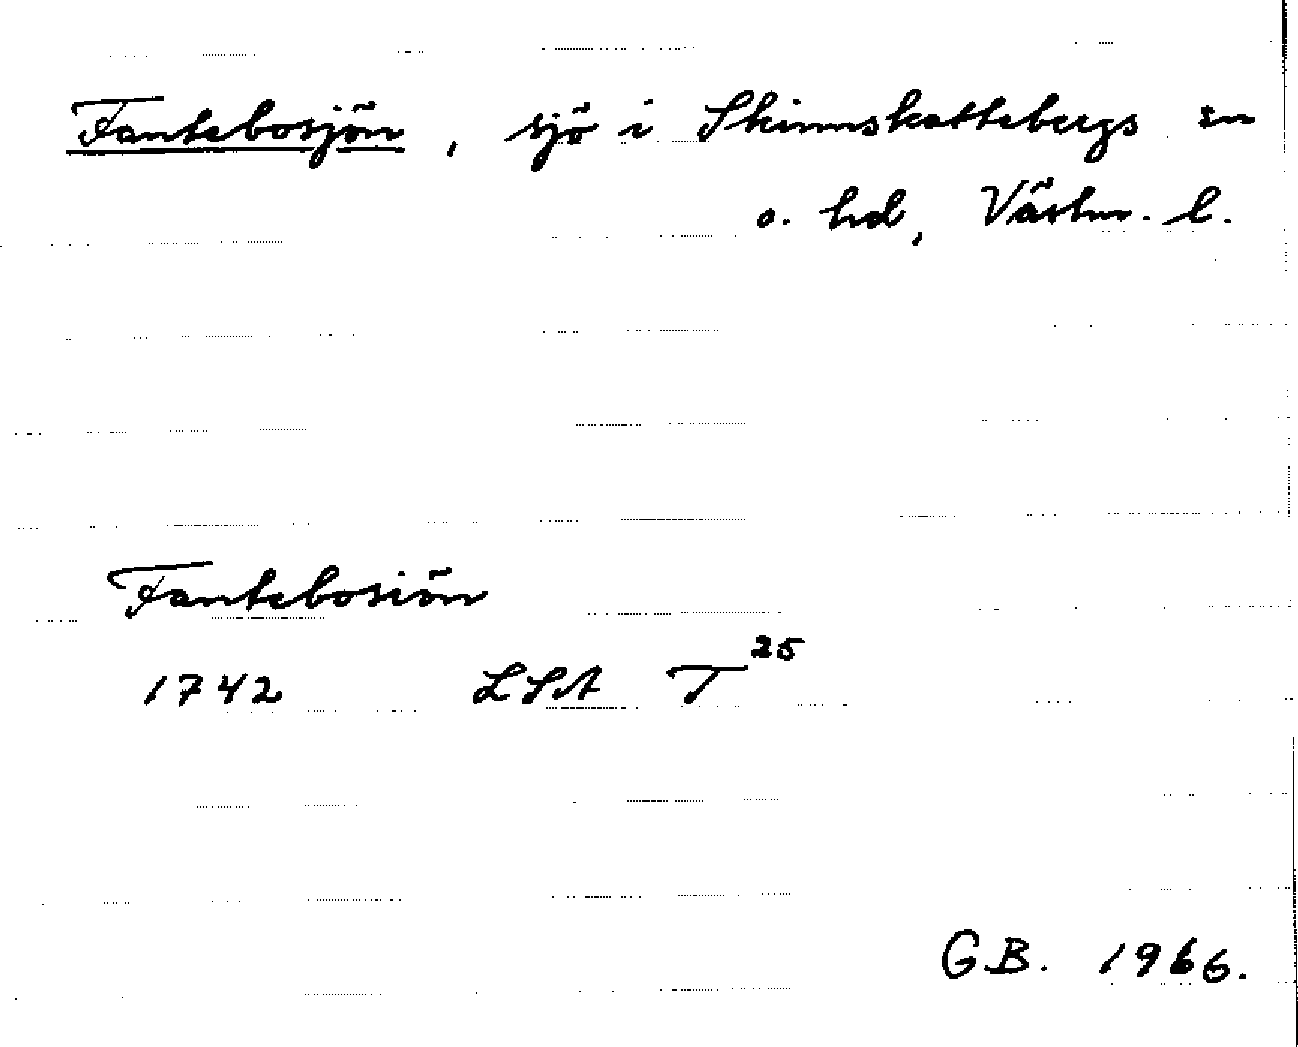 Fantebosjön, sjö i Skinnskattebergs sn
o. hd, Västm. l.
Fantebosiön
1742 LSA T25
GB. 1966.